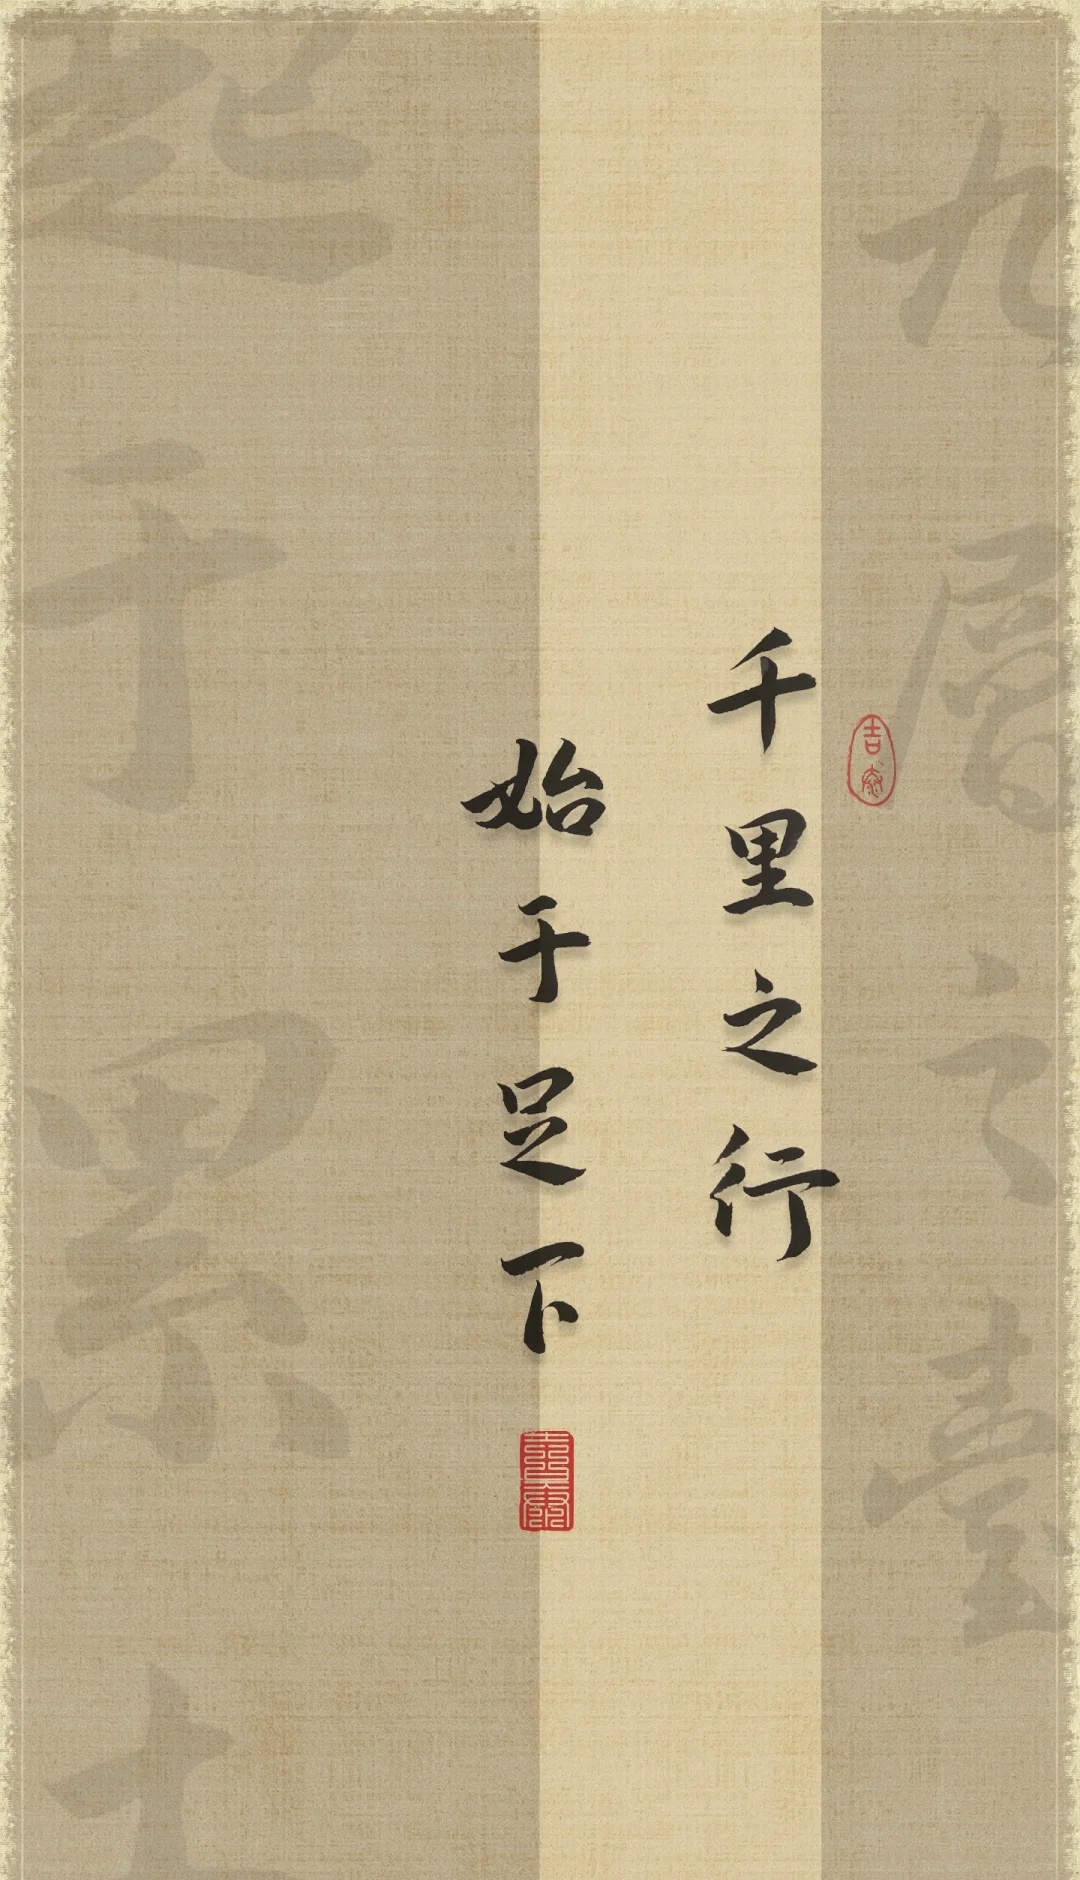 九层之臺
千里之行
始于足下
起于累土
吉